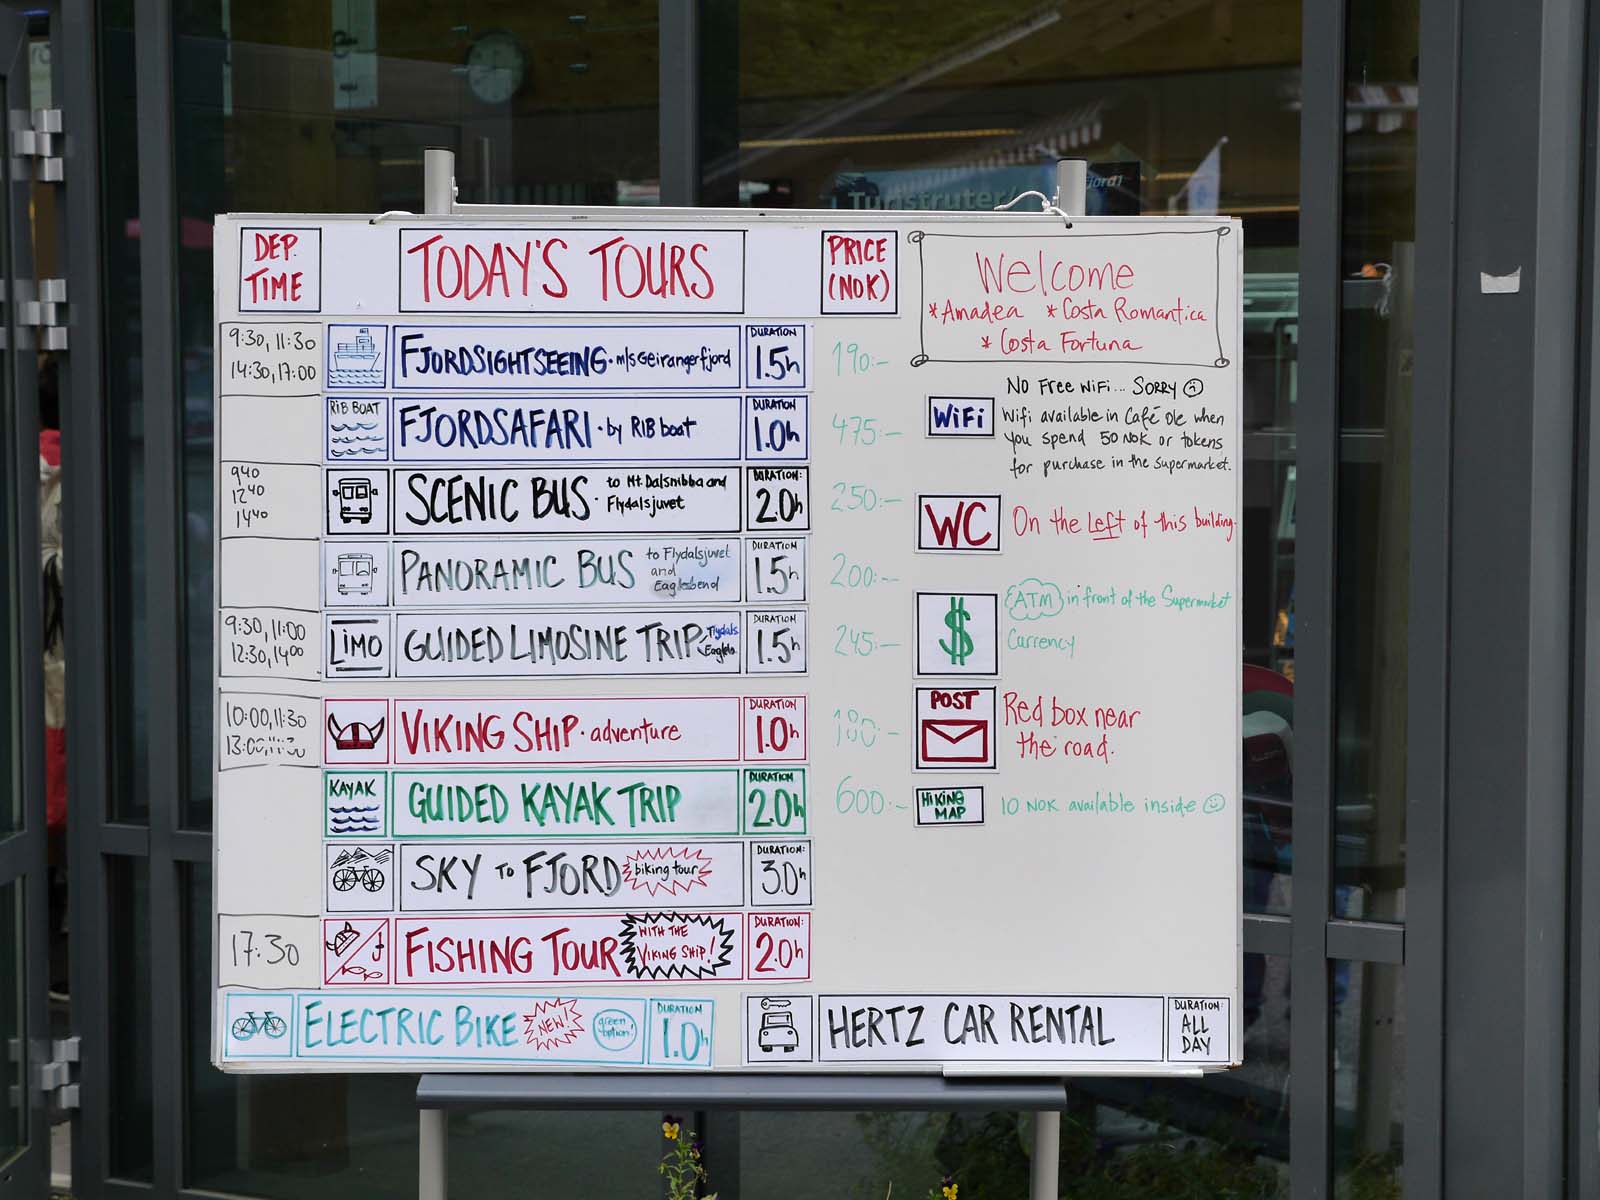 Turistruter/
fjord1
DEP.
TIME
TODAY'S TOURS
PRICE
(NOK)
Welcome
*Amadea *Costa Romantica
* Costa Fortuna
9:30, 11:30
14:30, 17:00
FJORDSIGHTSEEING · m/s Geirangerfjord
DURATION
1.5h
190:-
RIB BOAT
FJORDSAFARI · by RIB boat
DURATION
1.0h
475:-
9 40
12 40
14 40
SCENIC BUS · to Mt. Dalsnibba and
Flydalsjuvet
DURATION:
2.0h
250:-
PANORAMIC BUS to Flydalsjuvet
and
Eaglesbend
DURATION
1.5h
200:-
9:30, 11:00
12:30, 14 00
LIMO
GUIDED LIMOSINE TRIP Flydals.
Eagles.
DURATION
1.5h
245:-
10:00, 11:30
13:00,
VIKING SHIP · adventure
DURATION
1.0h
180:-
KAYAK
GUIDED KAYAK TRIP
DURATION
2.0h
600:-
SKY TO FJORD biking tour
DURATION:
3.0h
17:30
FISHING TOUR WITH THE
VIKING SHIP!
DURATION:
2.0h
ELECTRIC BIKE NEW! green
option!
DURATION
1.0h
HERTZ CAR RENTAL
DURATION:
ALL
DAY
WiFi
NO Free WiFi... SORRY
Wifi available in Café Ole when
you spend 50 NOK or tokens
for purchase in the supermarket.
WC
On the Left of this building.
$
ATM in front of the Supermarket
Currency
POST
Red box near
the road.
HIKING
MAP
10 NOK available inside